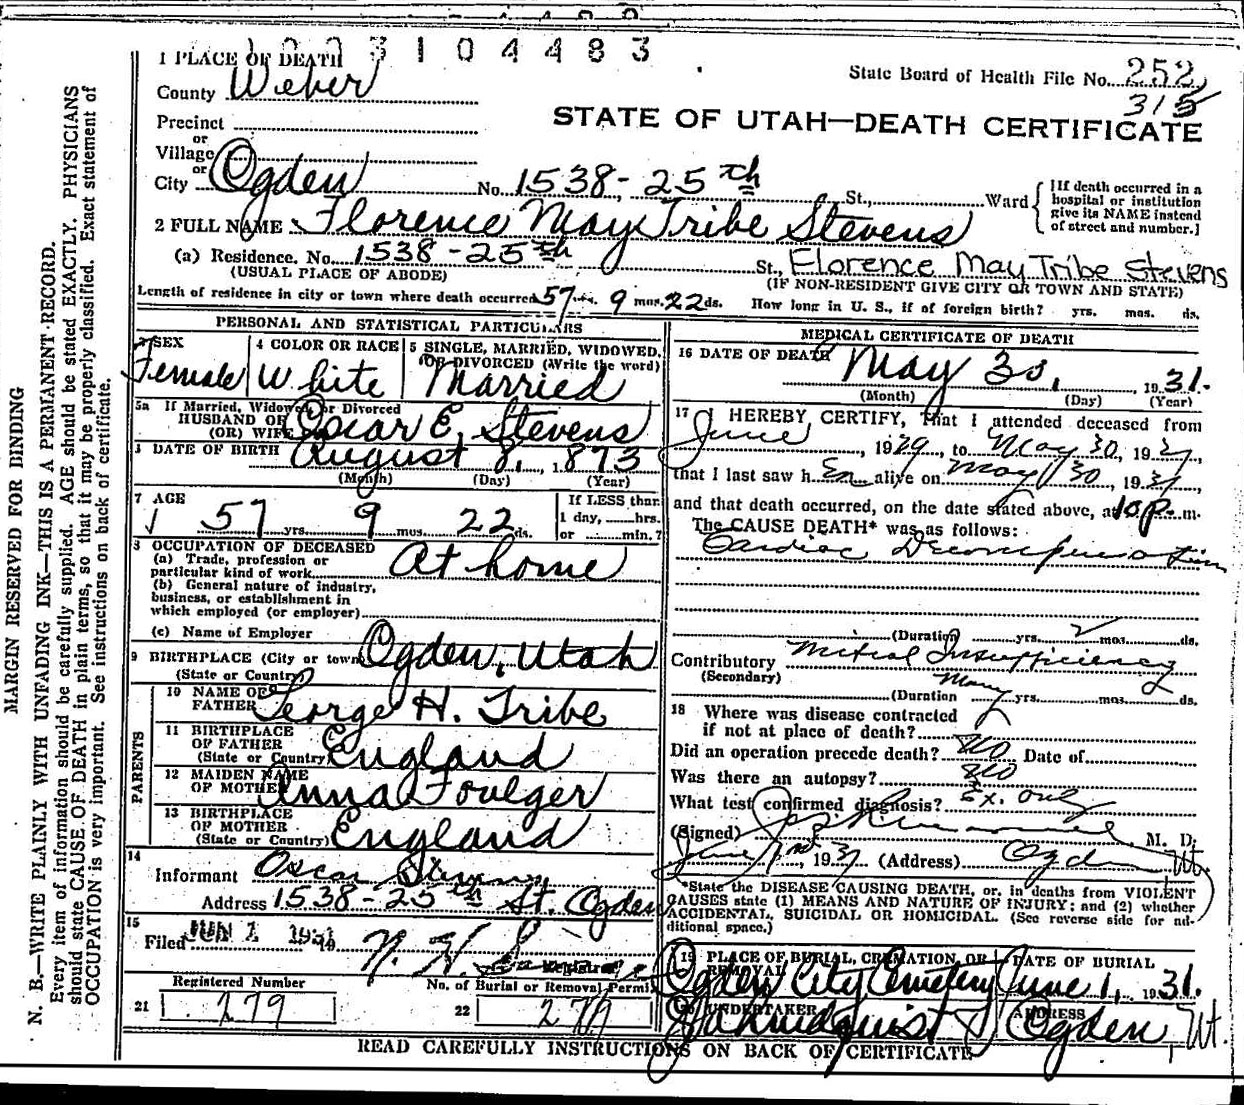 1003104483
1 PLACE OF DEATH
State Board of Health File No. 252
315
County Weber
STATE OF UTAH—DEATH CERTIFICATE
Precinct
or
Village
or
City Ogden No. 1538-25th St., Ward
[If death occurred in a
hospital or institution
give its NAME instead
of street and number.]
2 FULL NAME Florence May Tribe Stevens
(a) Residence. No. 1538-25th St., Florence May Tribe Stevens
(USUAL PLACE OF ABODE) (IF NON-RESIDENT GIVE CITY OR TOWN AND STATE)
Length of residence in city or town where death occurred 57 yrs. 9 mos. 22 ds. How long in U. S., if of foreign birth? yrs. mos. ds.
PERSONAL AND STATISTICAL PARTICULARS
3 SEX
Female
4 COLOR OR RACE
White
5 SINGLE, MARRIED, WIDOWED,
OR DIVORCED (Write the word)
Married
5a If Married, Widowed or Divorced
HUSBAND OF
(OR) WIFE Oscar E. Stevens
DATE OF BIRTH August 8, 1873
(Month) (Day) (Year)
7 AGE
57 yrs. 9 mos. 22 ds.
If LESS than
1 day, hrs.
or min.?
8 OCCUPATION OF DECEASED
(a) Trade, profession or
particular kind of work At home
(b) General nature of industry,
business, or establishment in
which employed (or employer)
(c) Name of Employer
9 BIRTHPLACE (City or town) Ogden, Utah
(State or Country)
PARENTS
10 NAME OF
FATHER George H. Tribe
11 BIRTHPLACE
OF FATHER
(State or Country) England
12 MAIDEN NAME
OF MOTHER Anna Foulger
13 BIRTHPLACE
OF MOTHER
(State or Country) England
14
Informant Oscar Stevens
Address 1538-25th St. Ogden
15
Filed JUN 1 1931 19 N. H.
Registrar
Registered Number
21 279
No. of Burial or Removal Permit
22 279
MEDICAL CERTIFICATE OF DEATH
16 DATE OF DEATH May 30, 1931.
(Month) (Day) (Year)
17 I HEREBY CERTIFY, That I attended deceased from
June, 1929, to May 30, 1931,
that I last saw h er alive on May 30, 1931,
and that death occurred, on the date stated above, at 10 p. m.
The CAUSE DEATH* was as follows:
Cardiac Decompensation
(Duration) yrs. 2 mos. ds.
Contributory Mitral Insufficiency
(Secondary)
(Duration Many yrs. mos. ds.
18 Where was disease contracted
if not at place of death?
Did an operation precede death? No Date of
Was there an autopsy? No
What test confirmed diagnosis? Ex. only
(Signed) M. D.
June 1, 1931 (Address) Ogden, Ut.
*State the DISEASE CAUSING DEATH, or, in deaths from VIOLENT
CAUSES state (1) MEANS AND NATURE OF INJURY; and (2) whether
ACCIDENTAL, SUICIDAL OR HOMICIDAL. (See reverse side for ad-
ditional space.)
19 PLACE OF BURIAL, CREMATION, OR
REMOVAL
Ogden City Cemetery
DATE OF BURIAL
June 1, 1931.
20 UNDERTAKER
Lindquist
ADDRESS
Ogden, Ut.
READ CAREFULLY INSTRUCTIONS ON BACK OF CERTIFICATE
MARGIN RESERVED FOR BINDING
N. B.—WRITE PLAINLY WITH UNFADING INK—THIS IS A PERMANENT RECORD.
Every item of information should be carefully supplied. AGE should be stated EXACTLY. PHYSICIANS
should state CAUSE OF DEATH in plain terms, so that it may be properly classified. Exact statement of
OCCUPATION is very important. See instructions on back of certificate.